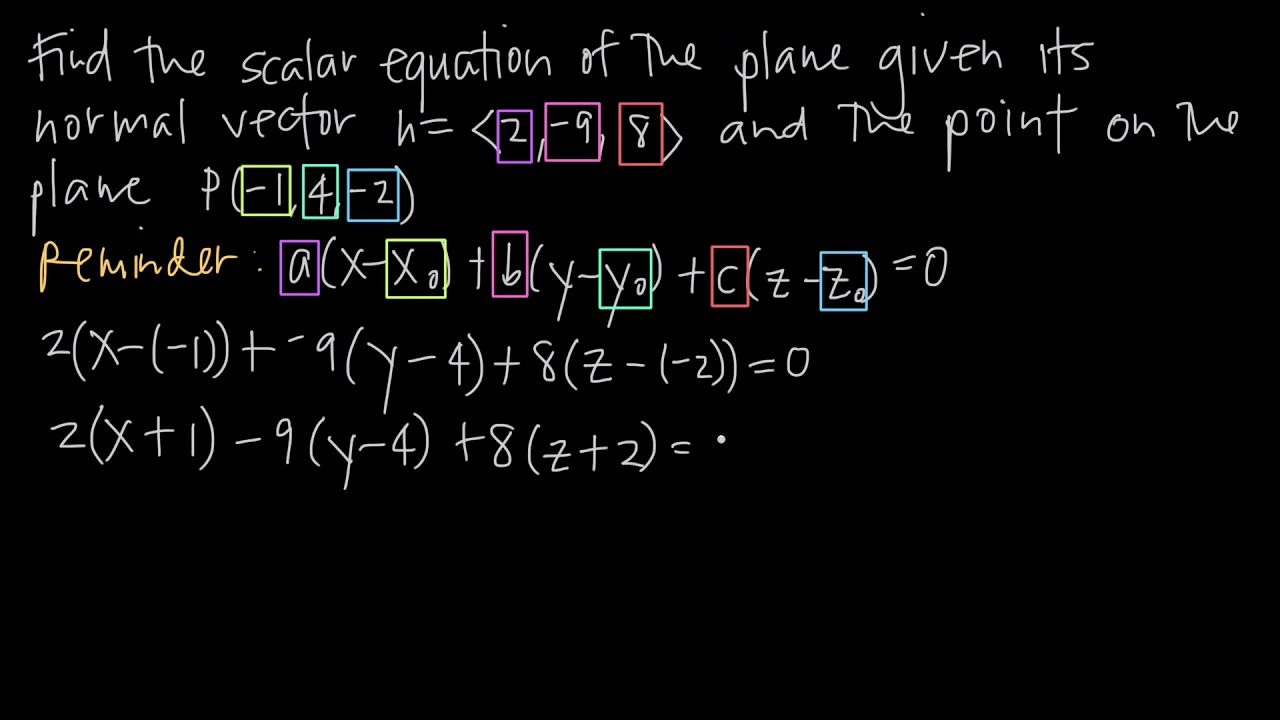 Find the scalar equation of the plane given its
normal vector n = <2, -9, 8> and the point on the
plane P(-1, 4, -2)
Reminder: a(x-x₀) + b(y-y₀) + c(z-z₀) = 0
2(x-(-1)) + -9(y-4) + 8(z-(-2)) = 0
2(x+1) - 9(y-4) + 8(z+2) =